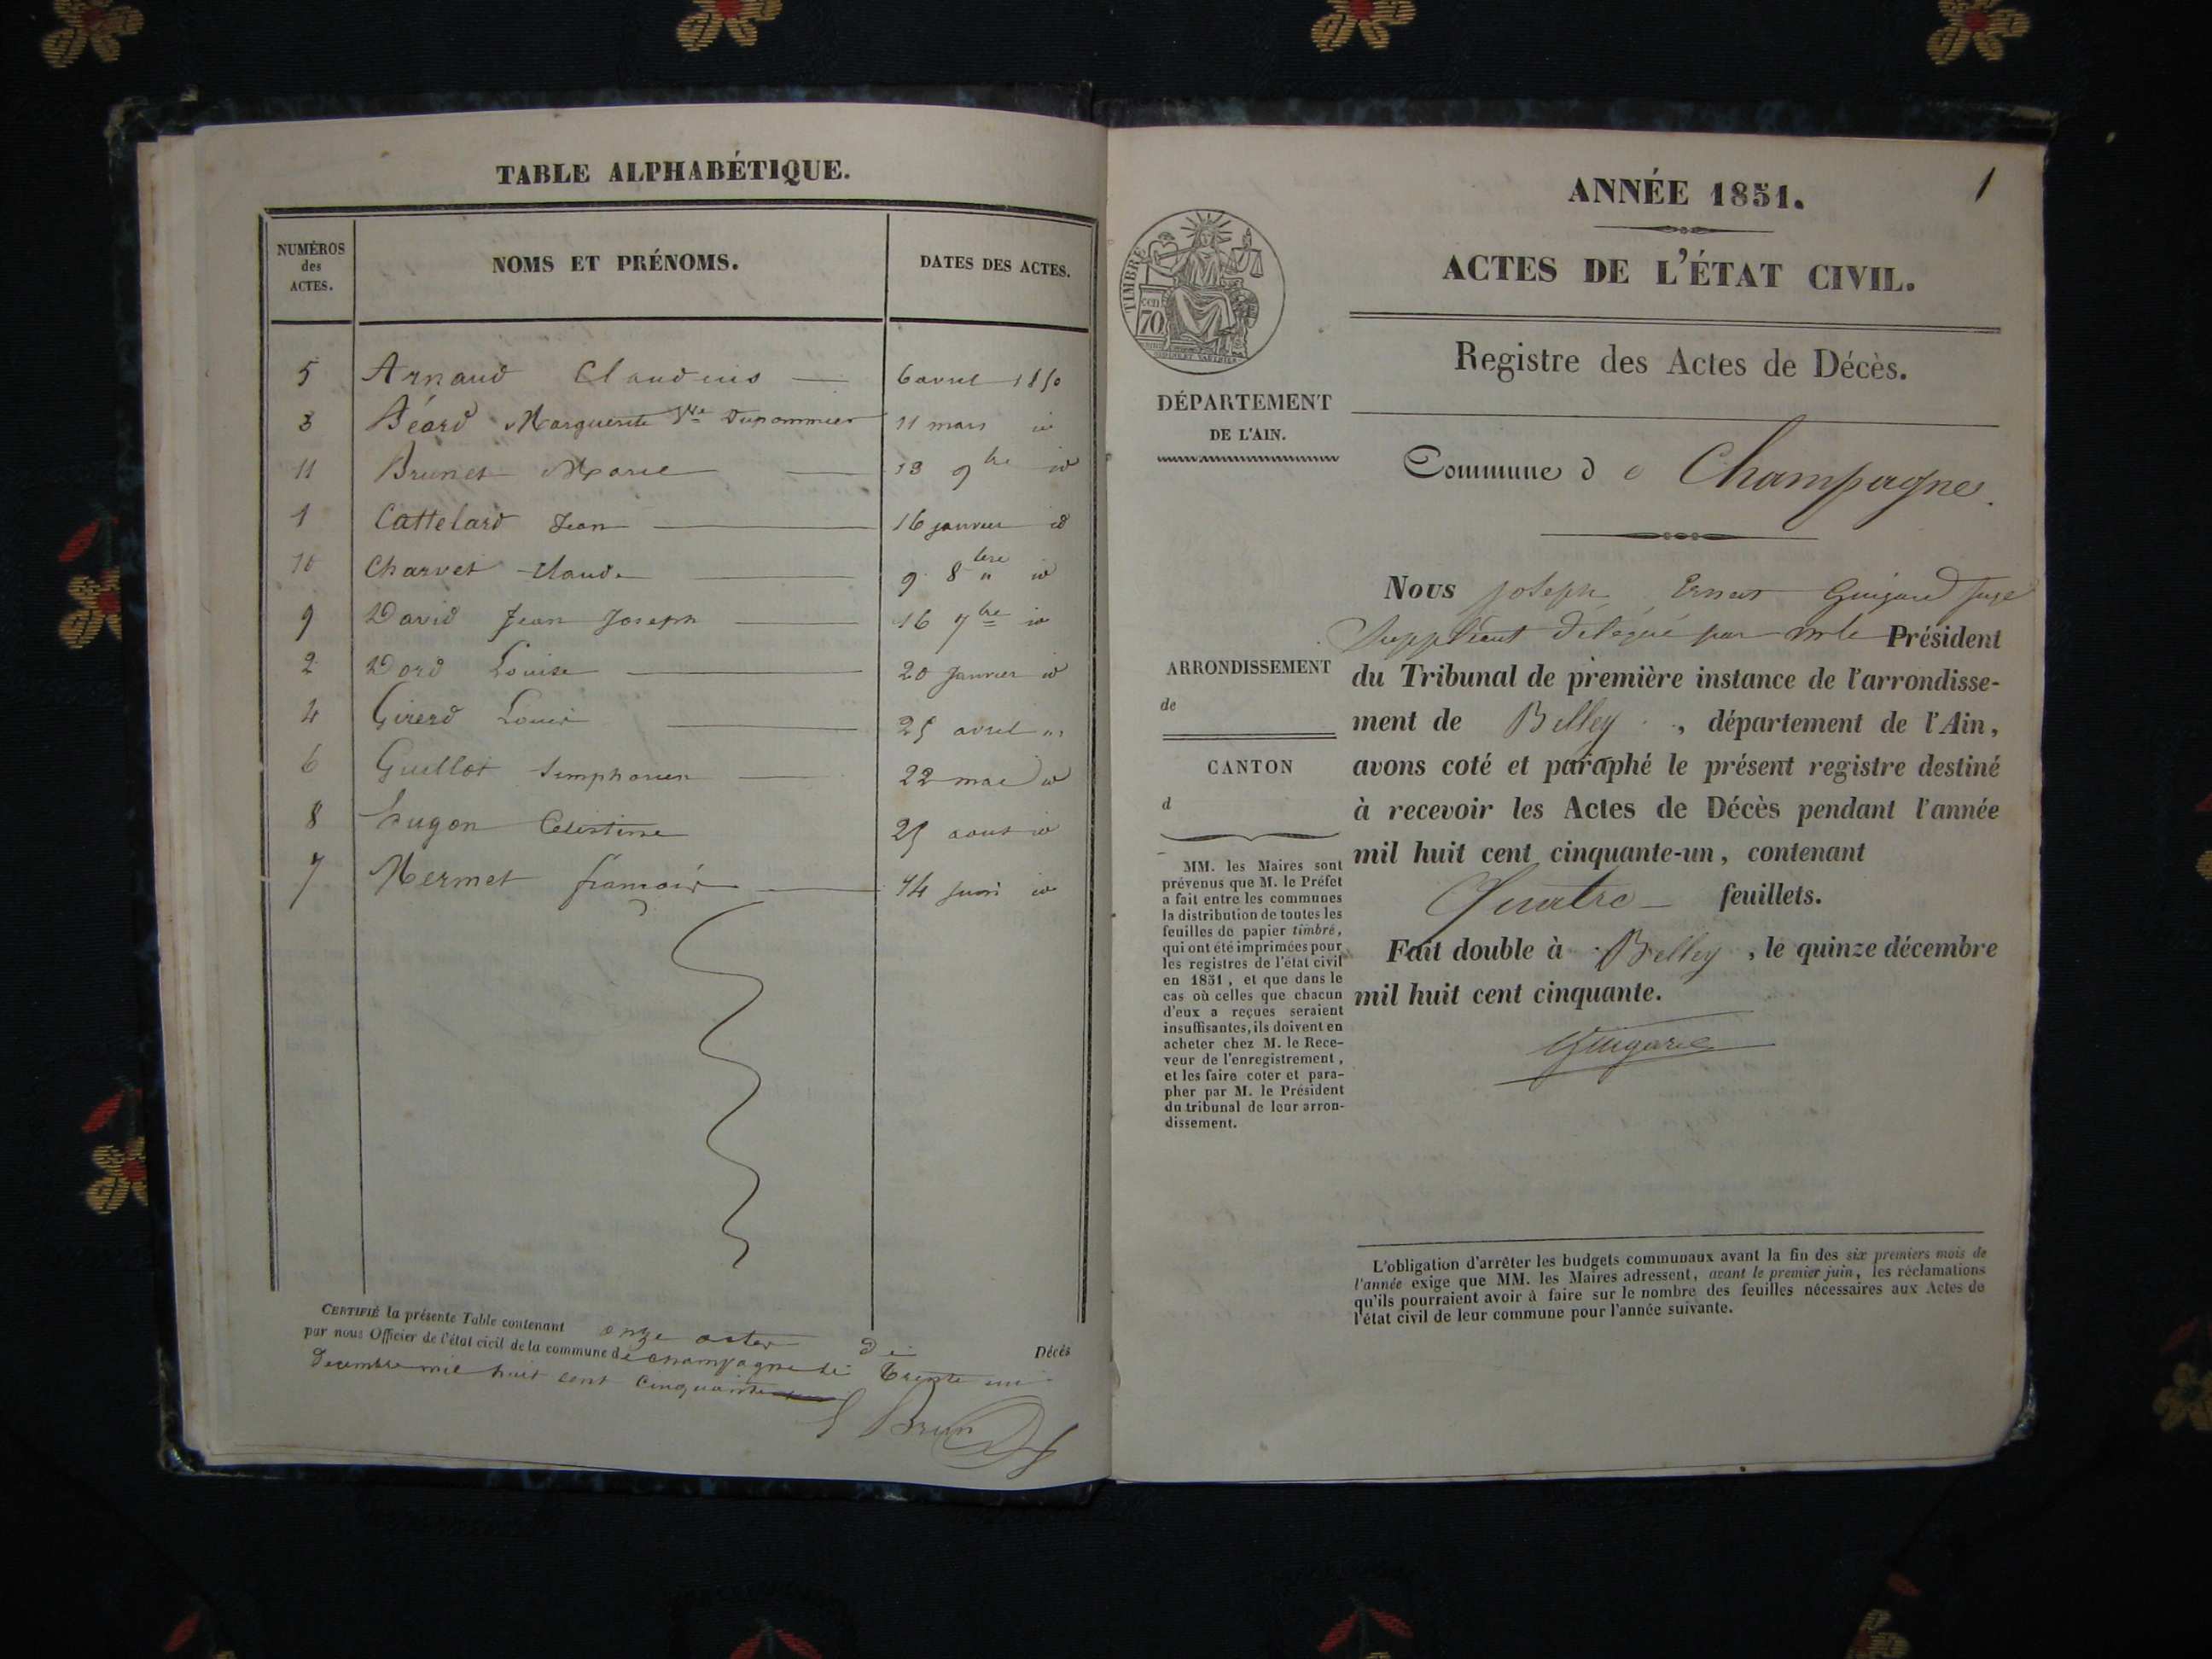 TABLE ALPHABÉTIQUE.
NUMÉROS
des
ACTES.
NOMS ET PRÉNOMS.
DATES DES ACTES.
5 Arnaud Claudius 6 avril 1850
3 Béard Marguerite Vve Dupommier 11 mars id
11 Brunet Marie 13 9bre id
1 Cattelard Jean 16 janvier id
10 Charvet Claude 9 8bre id
9 David Jean Joseph 16 7bre id
2 Dord Louise 20 Janvier id
4 Girerd Louis 25 avril
6 Guillot Simphorien 22 mai id
8 hugon Célestine 25 aout id
7 Mermet françois 14 Juin id
CERTIFIÉ la présente Table contenant onze actes de Décès
par nous Officier de l'état civil de la commune de champagne le Trente un
Decembre mil huit cent cinquante
Brun
1
ANNÉE 1851.
ACTES DE L'ÉTAT CIVIL.
Registre des Actes de Décès.
TIMBRE
70
DÉPARTEMENT
DE L'AIN.
Commune de Champagne.
Nous Joseph Ernest Guigard Juge
Suppléant délégué par mr le Président
du Tribunal de première instance de l'arrondisse-
ment de Belley, département de l'Ain,
avons coté et paraphé le présent registre destiné
à recevoir les Actes de Décès pendant l'année
mil huit cent cinquante-un, contenant
Quatre feuillets.
Fait double à Belley, le quinze décembre
mil huit cent cinquante.
Guigard
ARRONDISSEMENT
de
CANTON
d
MM. les Maires sont
prévenus que M. le Préfet
a fait entre les communes
la distribution de toutes les
feuilles de papier timbré,
qui ont été imprimées pour
les registres de l'état civil
en 1851, et que dans le
cas où celles que chacun
d'eux a reçues seraient
insuffisantes, ils doivent en
acheter chez M. le Rece-
veur de l'enregistrement,
et les faire coter et para-
pher par M. le Président
du tribunal de leur arron-
dissement.
L'obligation d'arrêter les budgets communaux avant la fin des six premiers mois de
l'année exige que MM. les Maires adressent, avant le premier juin, les réclamations
qu'ils pourraient avoir à faire sur le nombre des feuilles nécessaires aux Actes de
l'état civil de leur commune pour l'année suivante.